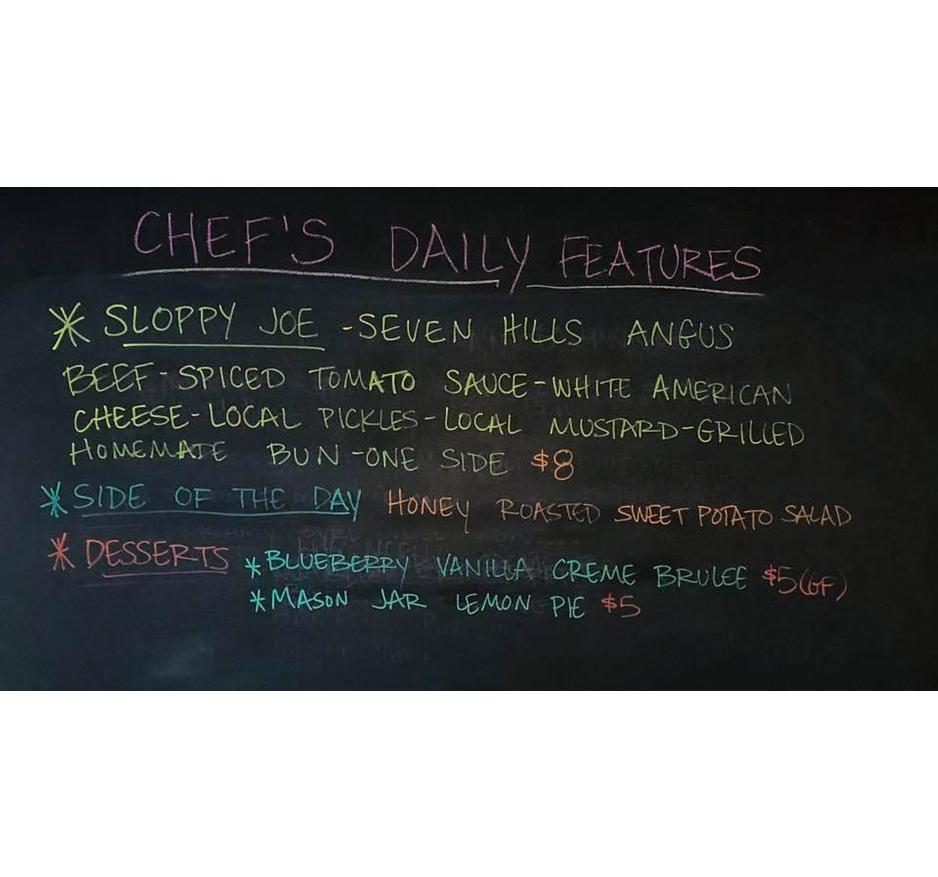 CHEF'S DAILY FEATURES
* SLOPPY JOE - SEVEN HILLS ANGUS
BEEF - SPICED TOMATO SAUCE - WHITE AMERICAN
CHEESE - LOCAL PICKLES - LOCAL MUSTARD - GRILLED
HOMEMADE BUN - ONE SIDE $8
* SIDE OF THE DAY HONEY ROASTED SWEET POTATO SALAD
* DESSERTS * BLUEBERRY VANILLA CREME BRULEE $5 (GF)
* MASON JAR LEMON PIE $5